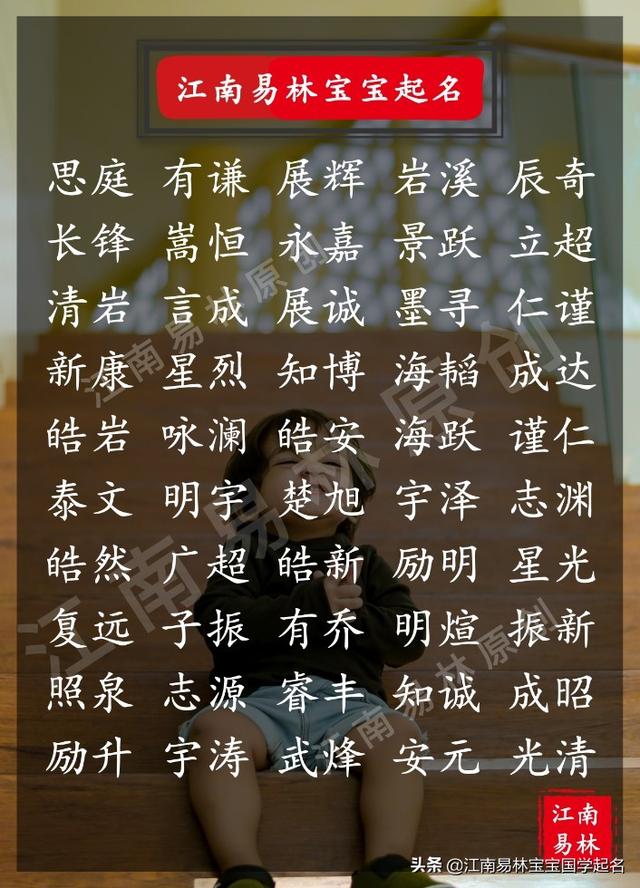 江南易林宝宝起名
思庭 有谦 展辉 岩溪 辰奇
长锋 嵩恒 永嘉 景跃 立超
清岩 言成 展诚 墨寻 仁谨
新康 星烈 知博 海韬 成达
皓岩 咏澜 皓安 海跃 谨仁
泰文 明宇 楚旭 宇泽 志渊
皓然 广超 皓新 励明 星光
复远 子振 有乔 明煊 振新
照泉 志源 睿丰 知诚 成昭
励升 宇涛 武烽 安元 光清
江南易林原创
江南易林原创
江南易林原创
江南
易林
头条 @江南易林宝宝国学起名